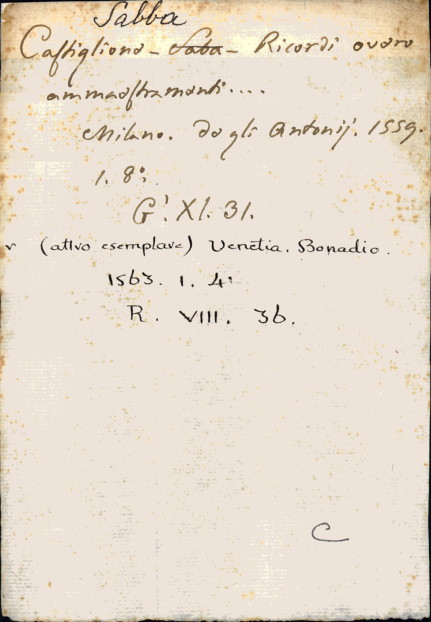 Sabba
Castiglione - Saba - Ricordi overo
ammaestramenti....
Milano. degli Antonij. 1559.
1. 8º.
G'. XI. 31.
v (altro esemplare) Venetia. Bonadio.
1563. 1. 4º
R. VIII. 36.
C